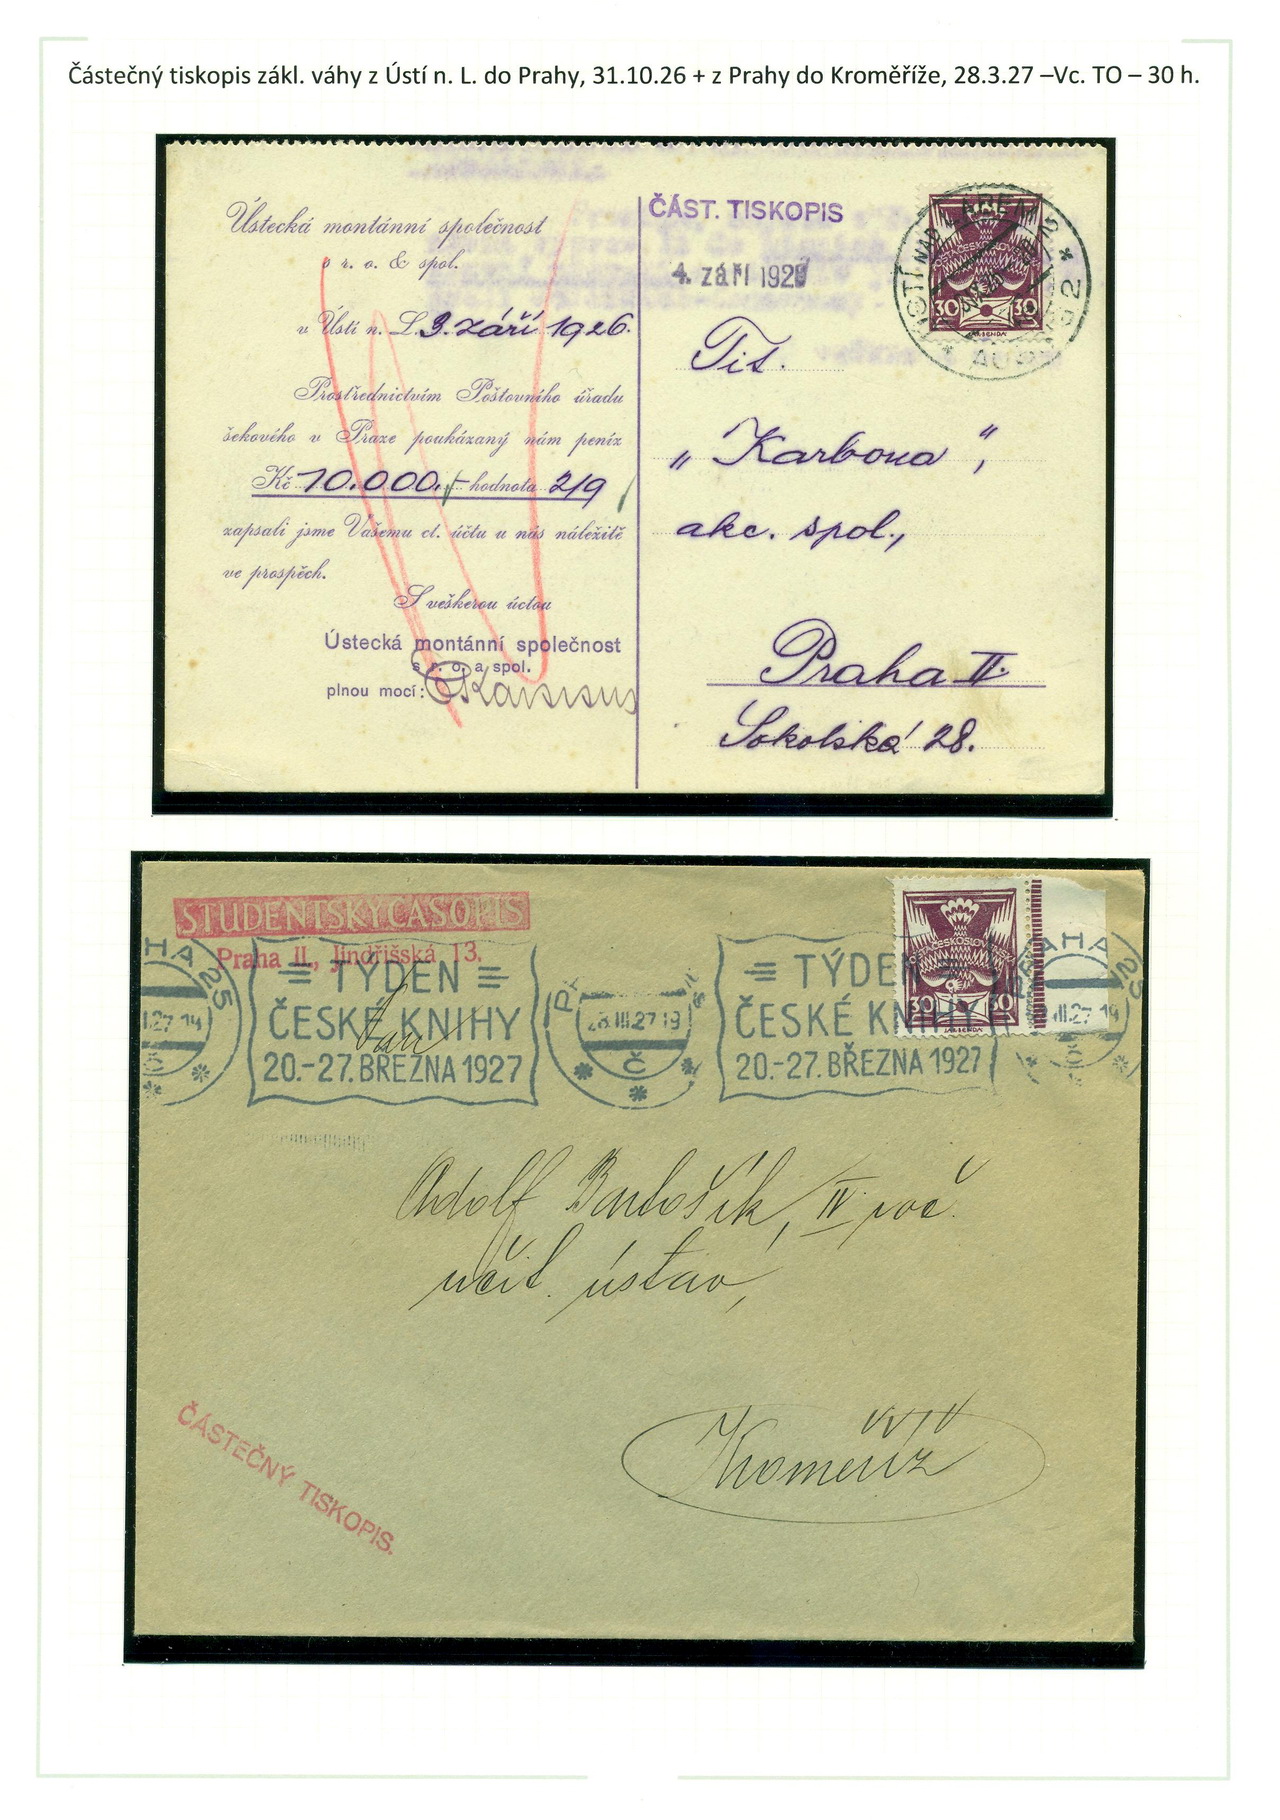 Částečný tiskopis zákl. váhy z Ústí n. L. do Prahy, 31.10.26 + z Prahy do Kroměříže, 28.3.27 –Vc. TO – 30 h.
Ústecká montánní společnost
s r. o. & spol.
v Ústí n. L. 3. září 1926.
Prostřednictvím Poštovního úřadu
šekového v Praze poukázaný nám peníz
Kč 10.000.- hodnota 2/9
zapsali jsme Vašemu ct. účtu u nás náležitě
ve prospěch.
S veškerou úctou
Ústecká montánní společnost
s r. o. a spol.
plnou mocí:
ČÁST. TISKOPIS
4. září 1926
ÚSTÍ NAD LABEM 2
30 30
Tit.
„Karbona",
akc. spol.,
Praha II.
Sokolská 28.
STUDENTSKÝ ČASOPIS
Praha II., Jindřišská 13.
PRAHA 25
TÝDEN
ČESKÉ KNIHY
20.-27. BŘEZNA 1927
28.III.27 19
č
TÝDEN
ČESKÉ KNIHY
20.-27. BŘEZNA 1927
30 30
Adolf Bartošík, IV. roč.
učit. ústav,
Kroměříž
ČÁSTEČNÝ TISKOPIS.